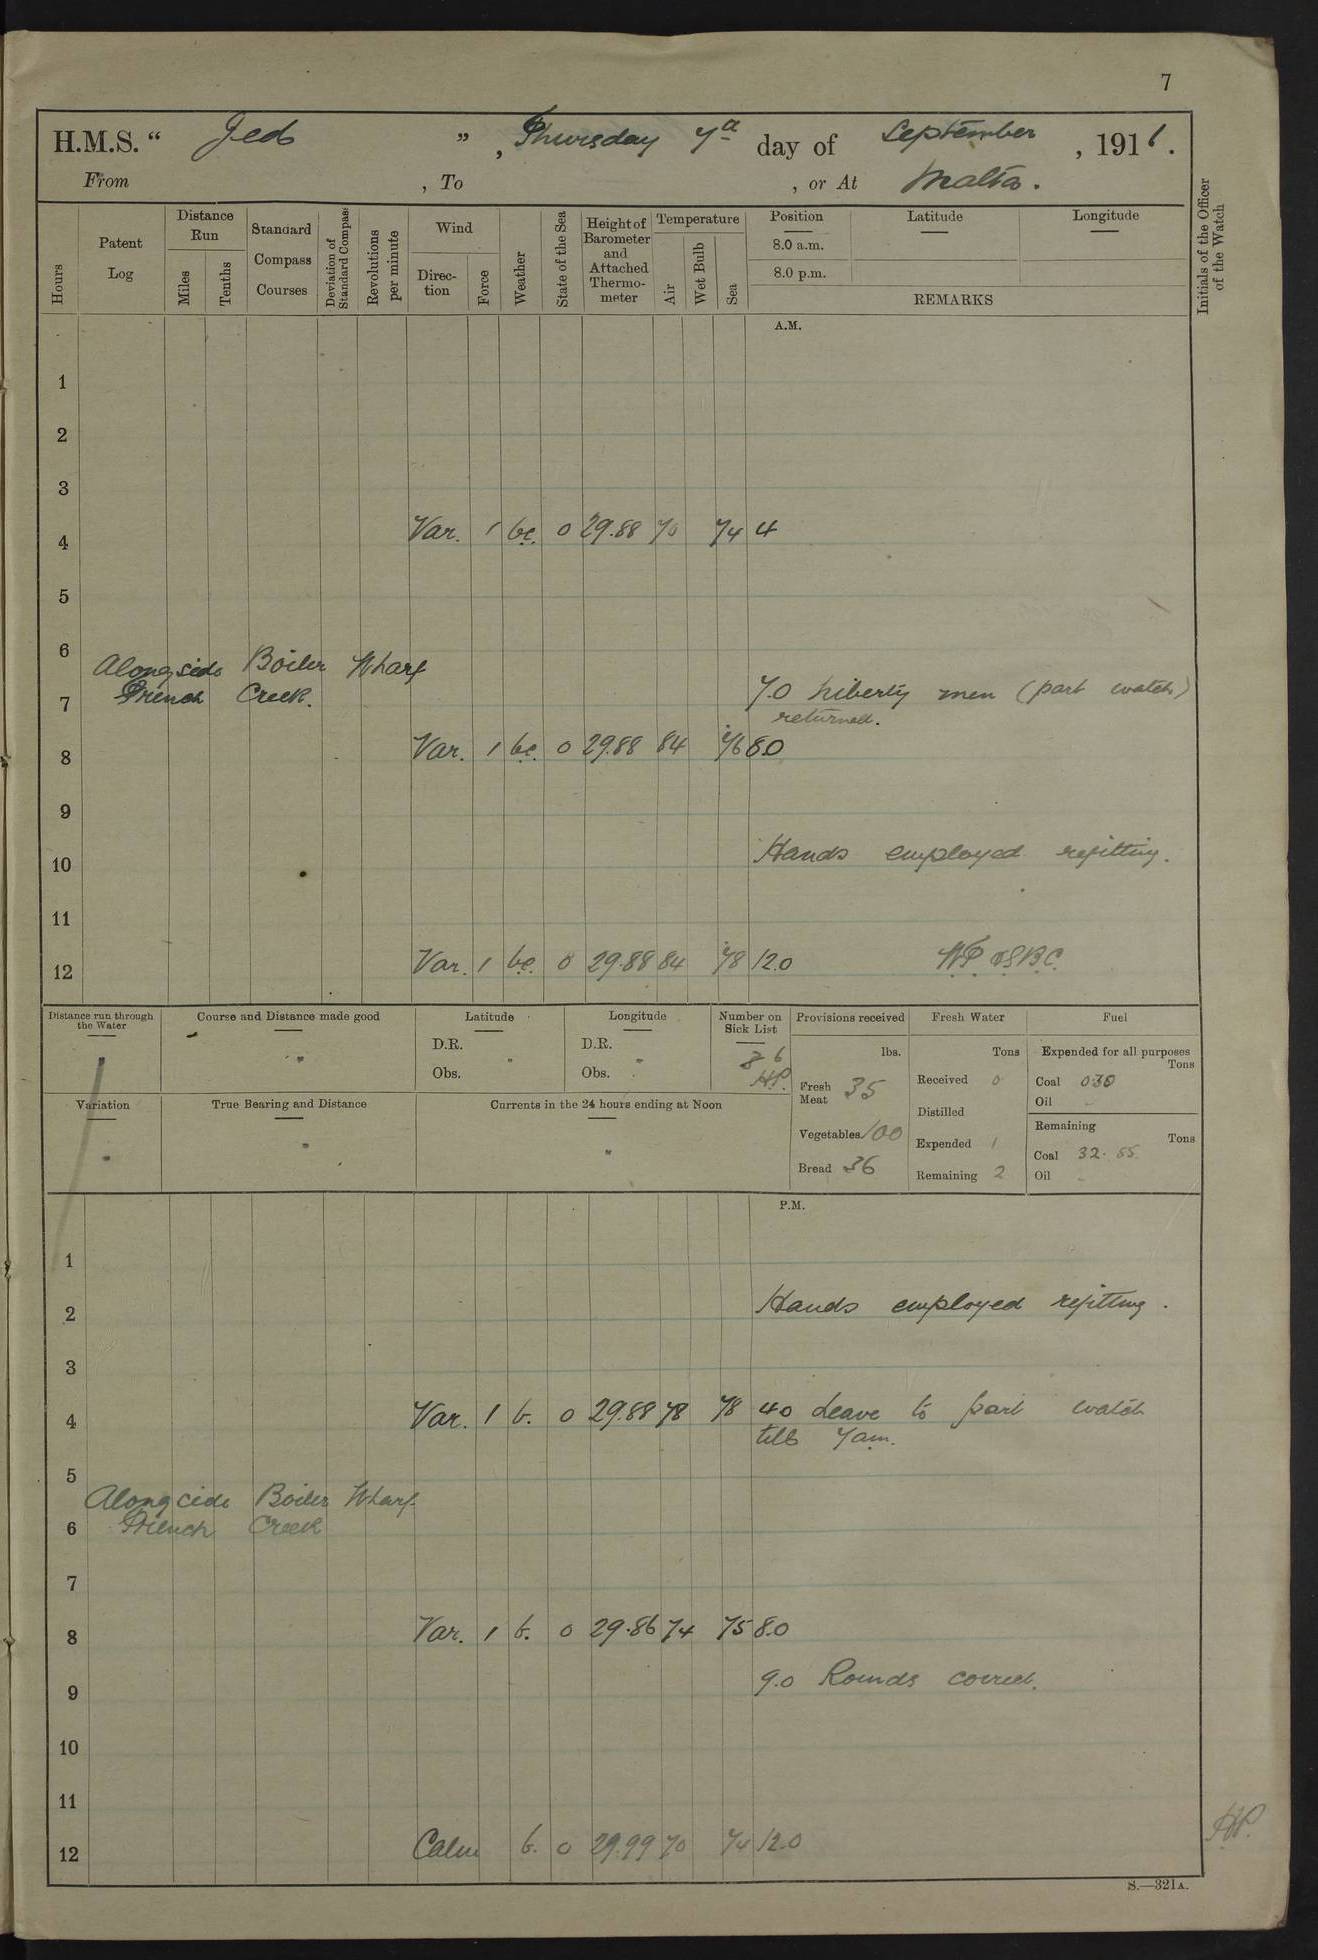 7
H.M.S. “ Jed ” , Thursday 7th day of September , 1916 .
From , To , or At Malta .
Hours
Patent Log
Distance Run
Miles
Tenths
Standard Compass Courses
Deviation of Standard Compass
Revolutions per minute
Wind
Direc-tion
Force
Weather
State of the Sea
Height of Barometer and Attached Thermo-meter
Temperature
Air
Wet Bulb
Sea
Position
Latitude
Longitude
8.0 a.m.
8.0 p.m.
REMARKS
Initials of the Officer of the Watch
A.M.
1
2
3
4 Var. 1 bc. 0 29.88 70 74 4
5
6
Alongside Boiler Wharf
7 French Creek. 7.0 Liberty men (part watch)
returned.
8 Var. 1 bc. 0 29.88 84 76 8.0
9
10 Hands employed refitting.
11
12 Var. 1 bc. 0 29.88 84 78 12.0
Distance run through the Water
Course and Distance made good
Latitude
D.R.
Obs.
Longitude
D.R.
Obs.
Number on Sick List
6
HP.
Provisions received
lbs.
Fresh Meat 35
Vegetables 100
Bread 36
Fresh Water
Tons
Received 0
Distilled
Expended 1
Remaining 2
Fuel
Expended for all purposes
Tons
Coal 0.30
Oil
Remaining
Tons
Coal 32.55
Oil
Variation
True Bearing and Distance
Currents in the 24 hours ending at Noon
P.M.
1
2 Hands employed refitting.
3
4 Var. 1 b. 0 29.88 78 78 4.0 Leave to part watch
till 7am.
5
Alongside Boiler Wharf
6 French Creek
7
8 Var. 1 b. 0 29.86 74 75 8.0
9 9.0 Rounds correct.
10
11
12 Calm b. 0 29.99 70 74 12.0
HP.
S.—321A.